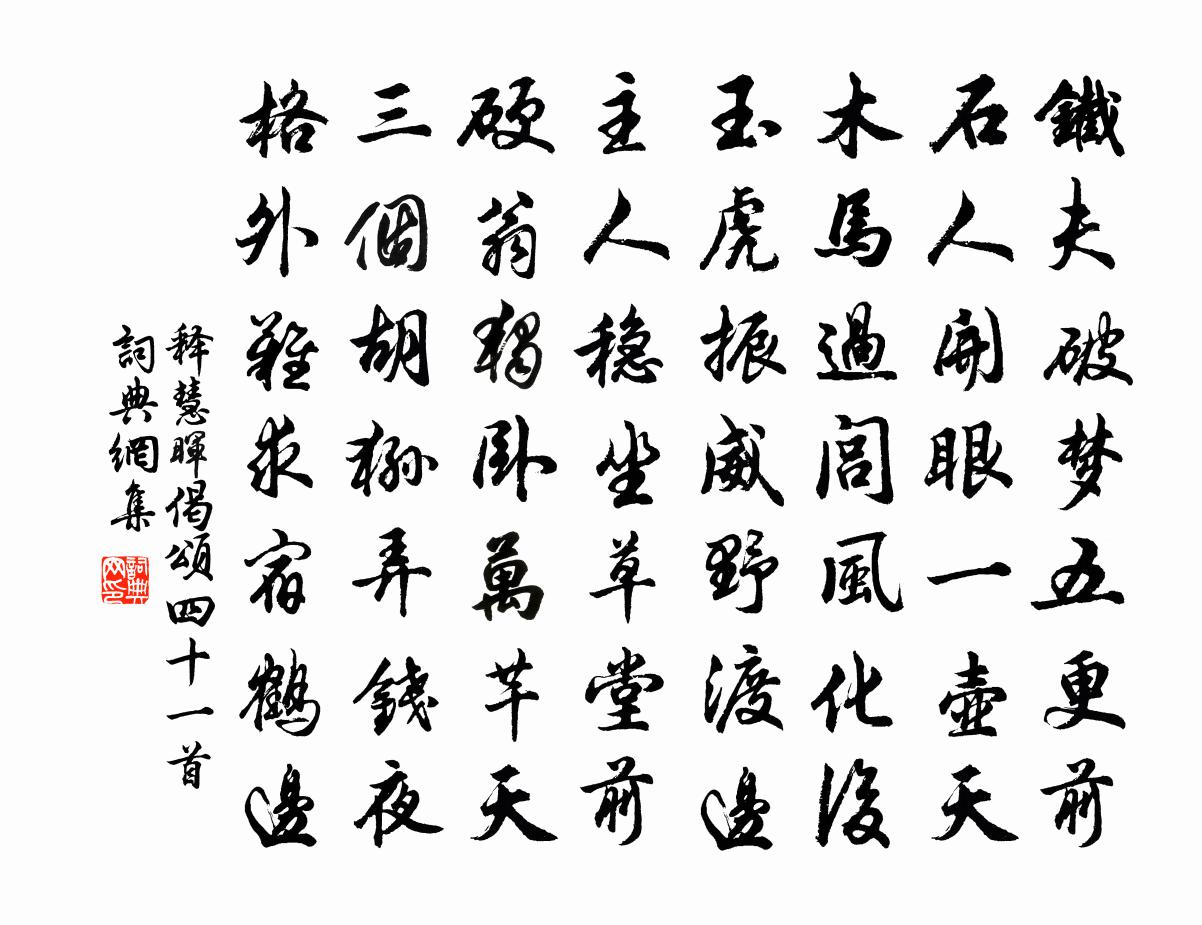 鐵夫破梦五更前
石人開眼一壺天
木馬過閻風化後
玉虎振威野渡邊
主人稳坐草堂前
硬翁獨卧萬芊天
三個胡猻弄錢夜
格外難求宿鶴邊
释慧暉偈頌四十一首
詞典網集
詞典网印